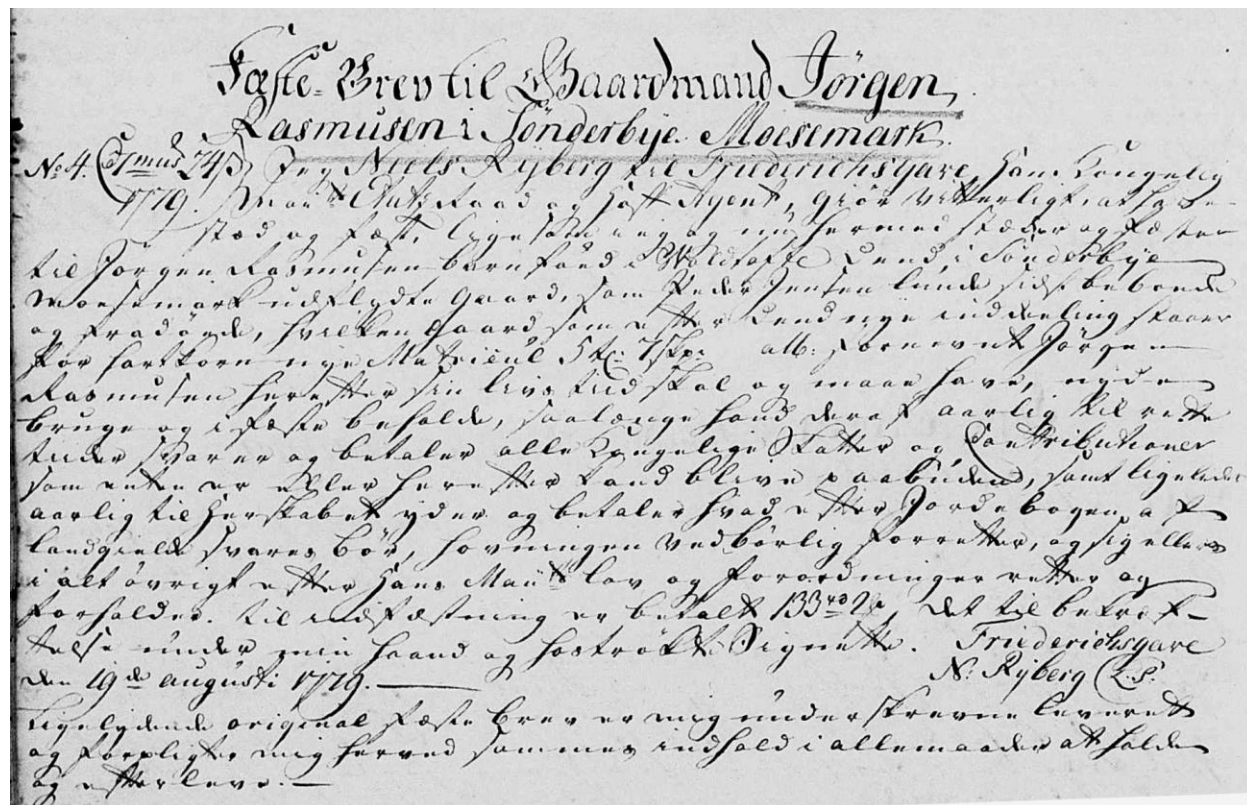 Fæste-Brev til Gaardmand Jörgen
Rasmusen i Sönderbye Moesemark
No 4. 24 s Jeg Niels Ryberg til Friderichsgave, Hans Kongelig
1779. Mayts Etatz Raad og Hoff Agent, giör vitterligt, at have
stæd og fæst, ligesom ieg og nu hermed stæder og fæster
til Jörgen Rasmusen barnföed i dend, i Sönderbye
Moesemark udflydte Gaard, som Peder Jensen Lunde sidst beboede
og fradöede, hvilken Gaard som efter dend nye inddeeling staaer
for hartkorn nye Matricul 5 tr: 7 skp: alb: Forneunt Jörgen
Rasmusen herefter sin livs tid skal og maae have, nyde
bruge og i fæste beholde, saalænge hand deraf aarlig til rette
tider svarer og betaler alle Kongelige Skatter og Contributioner
som enten er eller herefter kand blive paabuden, samt ligeledes
aarlig til Herskabet yder og betaler hvad efter Jordebogen af
landgielde svares bör, hovningen vedbörlig forretter, og sig ellers
i alt övrigt efter Hans Mayts lov og forordninger retter og
forholder. til indfæstning er betalt 133 rd 2 Det til bekræf-
telse under min haand og hoströkte Signette. Friederichsgave
den 19de augusti 1779. N: Ryberg (L.S.
Ligelydende original fæste brev er mig underskrevne leveret
og forpligter mig herved sammes indhold i alle maader at holde
og efterleve.